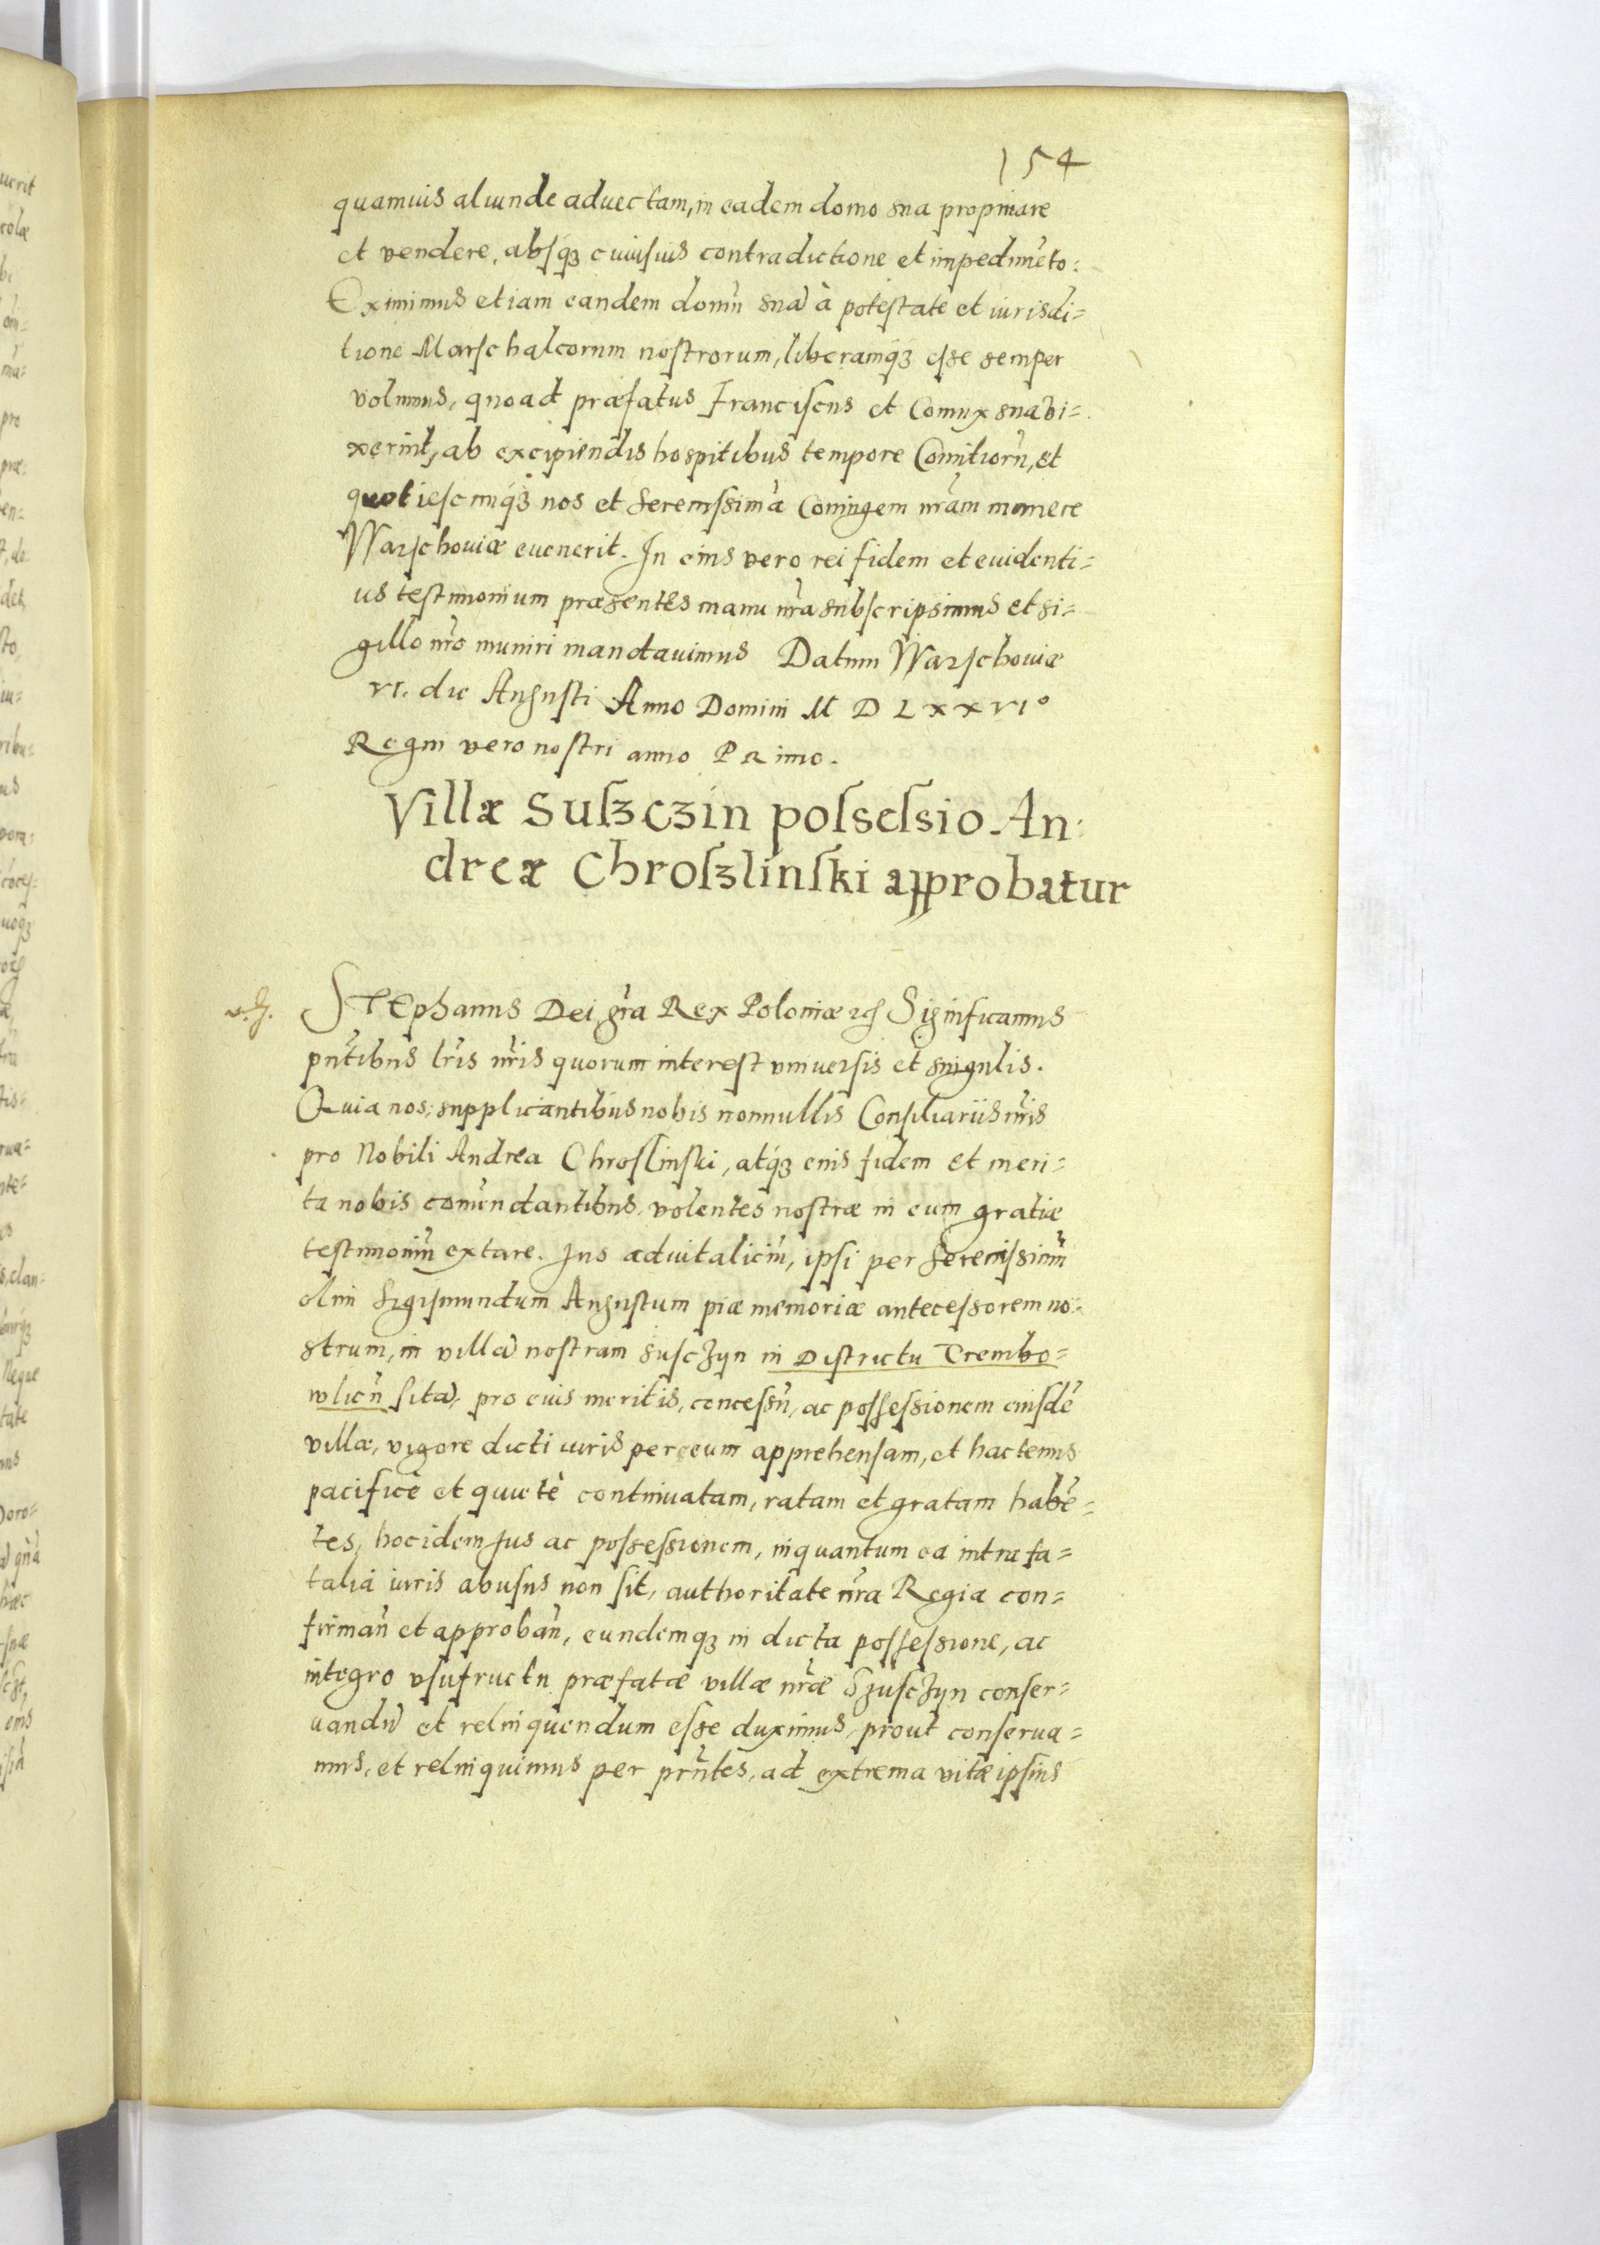 154
quamuis aliunde aduectam, in eadem domo sua propinare
et vendere, absq3 cuiusuis contradictione et impedimẽto:
Eximimus etiam eandem domũ suã à potestate et iurisdi=
tione Marschalcorum nostrorum, liberamq3 esse semper
volumus, quoad præfatus Franciscus et Coniux sua vi=
xerint, ab excipiendis hospitibus tempore Comitiorũ, et
quotiescunq3 nos et serenissimã Coniugem nr̃am manere
Warschouiæ euenerit. In eius vero rei fidem et euidenti=
us testimonium præsentes manu nr̃a subscripsimus et si=
gillo nr̃o muniri mandauimus Datum Warschouiæ
VI. die Augusti Anno Domini M D L X X V I°
Regni vero nostri anno PRimo.
Villæ Suszczin possessio An:
dreæ Chroszlinski approbatur
STEphanus Dei gr̃a Rex Poloniæ etc Significamus
pñtibus lr̃is nr̃is quorum interest vniuersis et singulis.
Quia nos, supplicantibus nobis nonnullis Consiliariis nr̃is
pro Nobili Andrea Chroslinski, atq3 eius fidem et meri=
ta nobis comẽndantibus, volentes nostræ in eum gratiæ
testimoniũ extare. Jus aduitaliciũ, ipsi per Serenissimũ
olim Sigismundum Augustum piæ memoriæ antecessorem no=
strum, in villã nostram Susczyn in Districtu Trembo=
wlien̄ sitã, pro eius meritis, concessũ, ac possessionem eiusdẽ
villæ, vigore dicti iuris per eum apprehensam, et hactenus
pacificè et quietè continuatam, ratam et gratam habẽ=
tes, hoc idem Jus ac possessionem, inquantum ea intra fa=
talia iuris abusus non sit, authoritate nr̃a Regia con=
firman̄ et approban̄, eundemq3 in dicta possessione, ac
integro vsufructu præfatæ villæ nr̃æ Szusczyn conser=
uandũ et relinquendum esse duximus, prout conserua=
mus, et relinquimus per prñtes, ad extrema vitæ ipsius